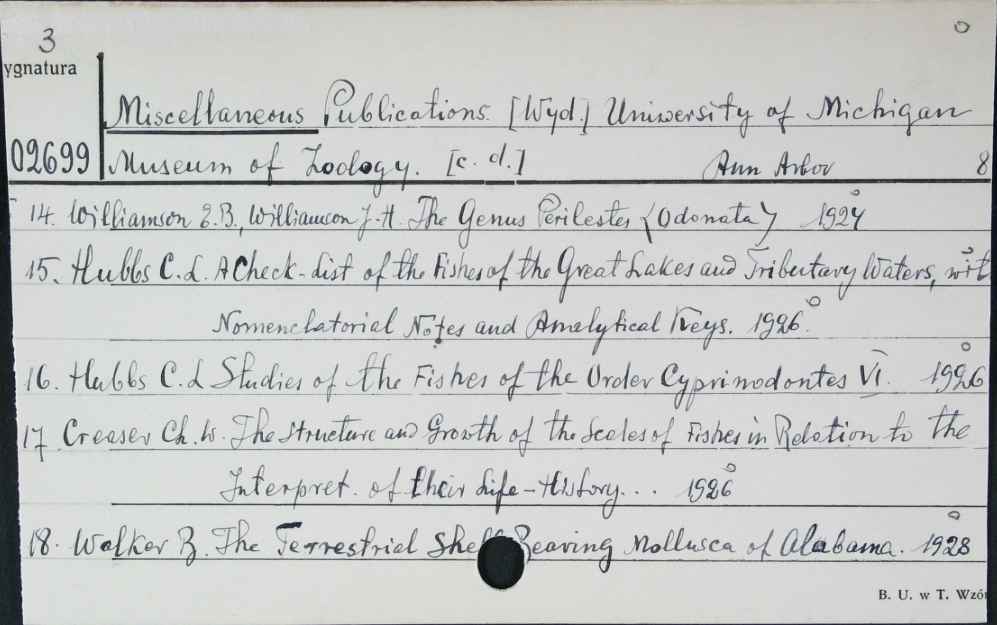 3
ygnatura
Miscellaneous Publications. [Wyd.] University of Michigan
02699 Museum of Zoology. [c. d.] Ann Arbor 8
14. Williamson E.B., Williamson J.H. The Genus Perilestes (Odonata) 1924
15. Hubbs C.L. A Check-List of the Fishes of the Great Lakes and Tributary Waters, wit
Nomenclatorial Notes and Analytical Keys. 1926
16. Hubbs C.L Studies of the Fishes of the Order Cyprinodontes VI. 1926
17 Creaser Ch.W. The Structure and Growth of the Scales of Fishes in Relation to the
Interpret. of their Life-History... 1926
18. Walker B. The Terrestrial Shell Bearing Mollusca of Alabama. 1928
B. U. w T. Wzór